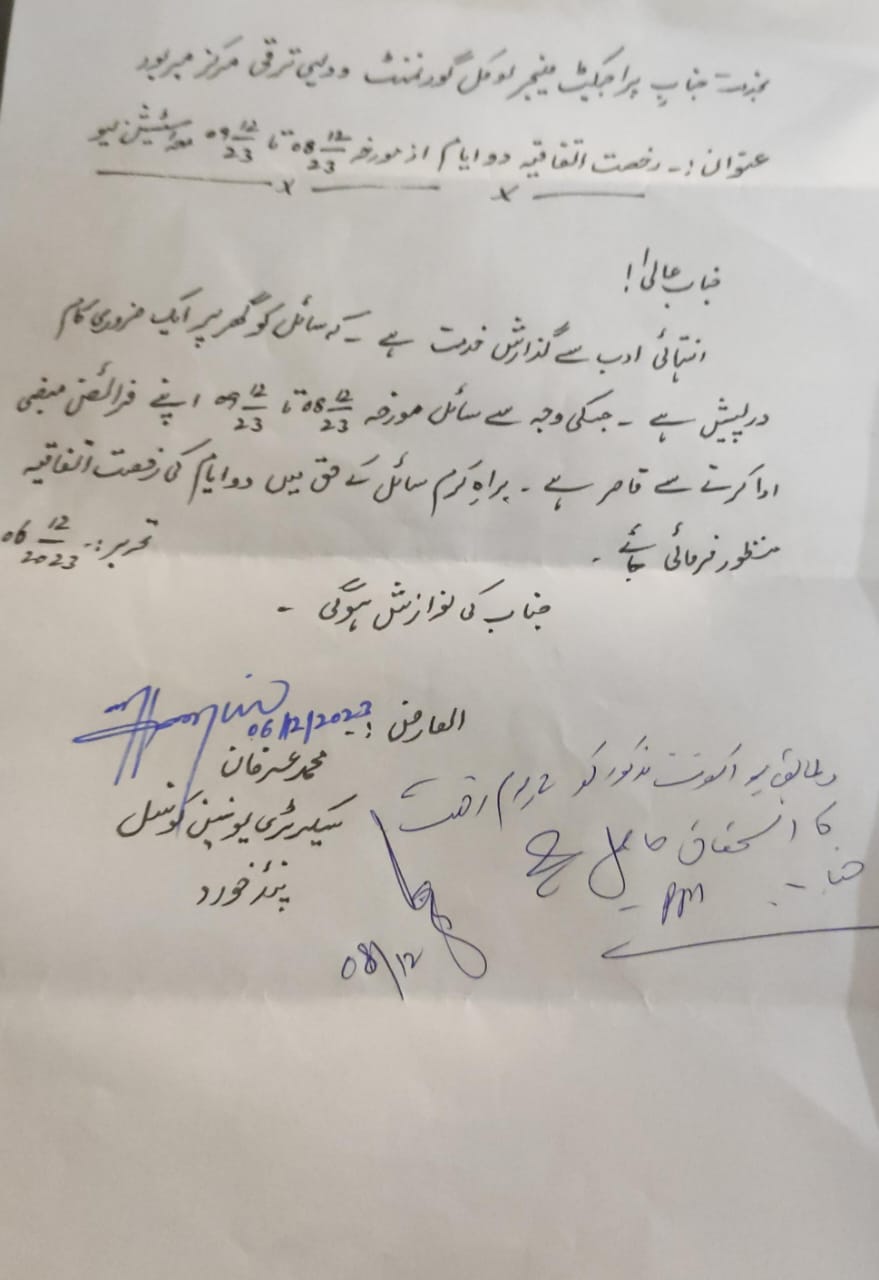 بخدمت جناب پراجیکٹ منیجر لوکل گورنمنٹ و دیہی ترقی مرکز میرپور
عنوان :۔ رخصت اتفاقیہ دو ایام از مورخہ 08 12/23 تا 09 12/23 معہ اسٹیشن لیو
جناب عالی!
انتہائی ادب سے گذارش خدمت ہے ۔ کہ سائل کو گھر پر ایک ضروری کام
درپیش ہے ۔ جسکی وجہ سے سائل مورخہ 08 12/23 تا 09 12/23 اپنے فرائض منصبی
ادا کرنے سے قاصر ہے ۔ براہ کرم سائل کے حق میں دو ایام کی رخصت اتفاقیہ
منظور فرمائی جائے ۔
تحریر :۔ 06 12/2023
جناب کی نوازش ہوگی ۔
العارض :
06/12/2023
محمد عرفان
سیکرٹری یونین کونسل
پنڈ خورد
مطابق لیو اکونٹ مذکور کو رخصت
کا استحقاق حاصل ہے
جناب PM
08/12